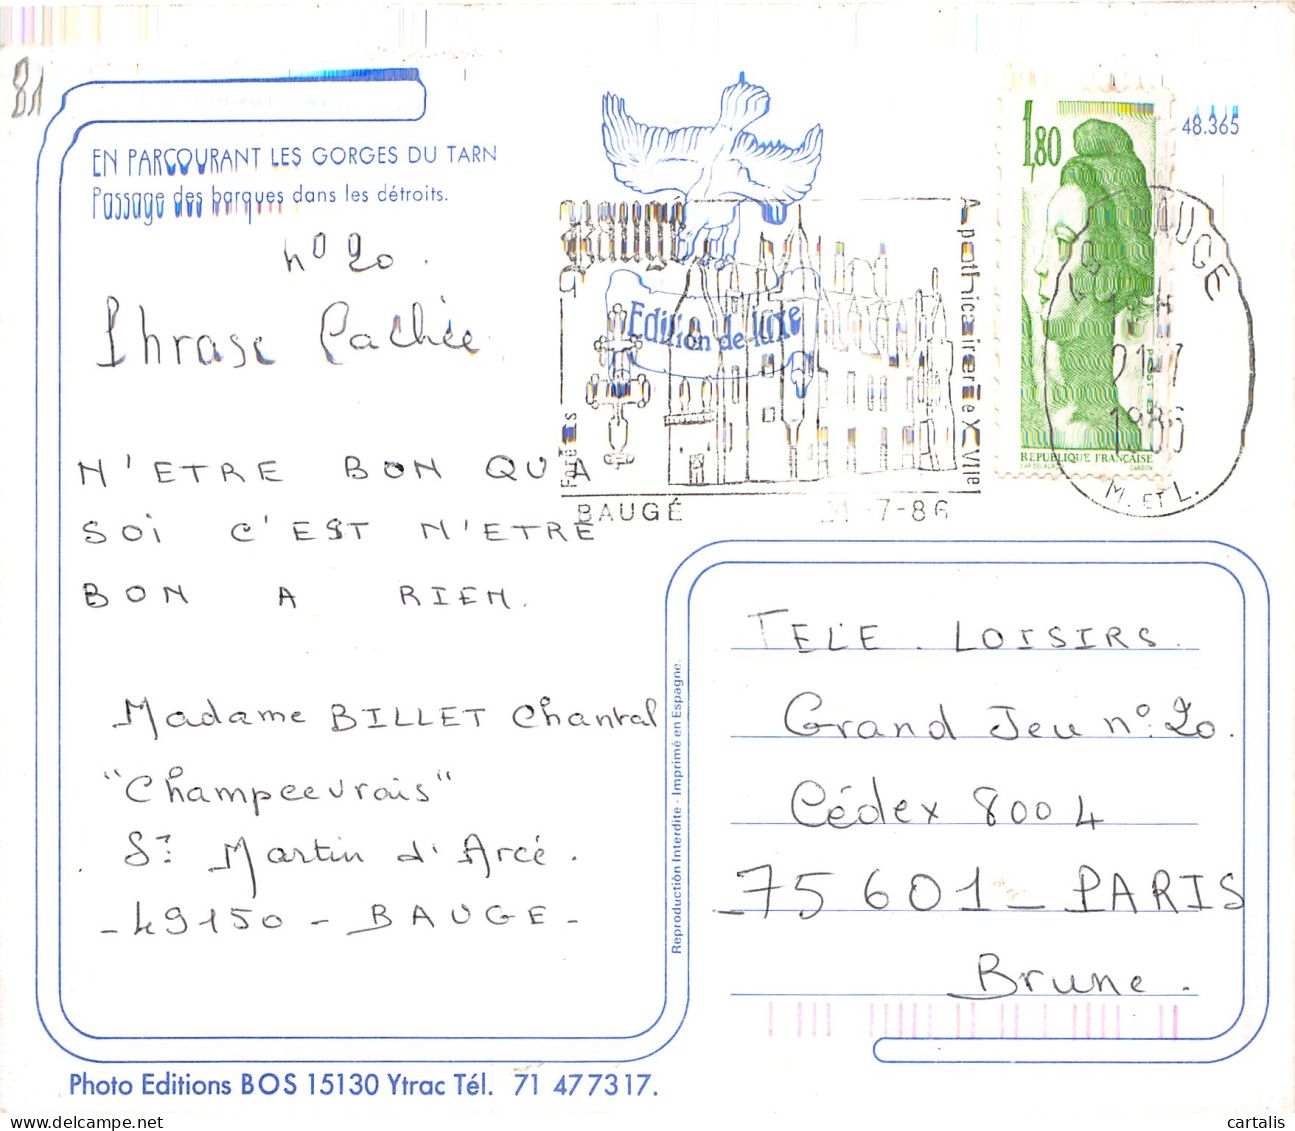 81
EN PARCOURANT LES GORGES DU TARN
Passage des barques dans les détroits.
n° 20.
Phrase Cachée
N'ETRE BON QU'A
SOI C'EST N'ETRE
BON A RIEN.
Madame BILLET Chantal
"Champeevrais"
St Martin d'Arcé.
- 49150 - BAUGE -
Baugé
Edition de luxe
Apothicairerie XVIIe
Forêts
BAUGÉ 21-7-86
1,80
RÉPUBLIQUE FRANÇAISE
GANDON
48.365
BAUGE
21-7
1986
M. ET L.
Reproduction Interdite - Imprimé en Espagne.
TELE. LOISIRS.
Grand Jeu n° 20.
Cédex 8004
- 75601 - PARIS
Brune.
Photo Editions BOS 15130 Ytrac Tél. 71 47 73 17.
cartalis
delcampe.net